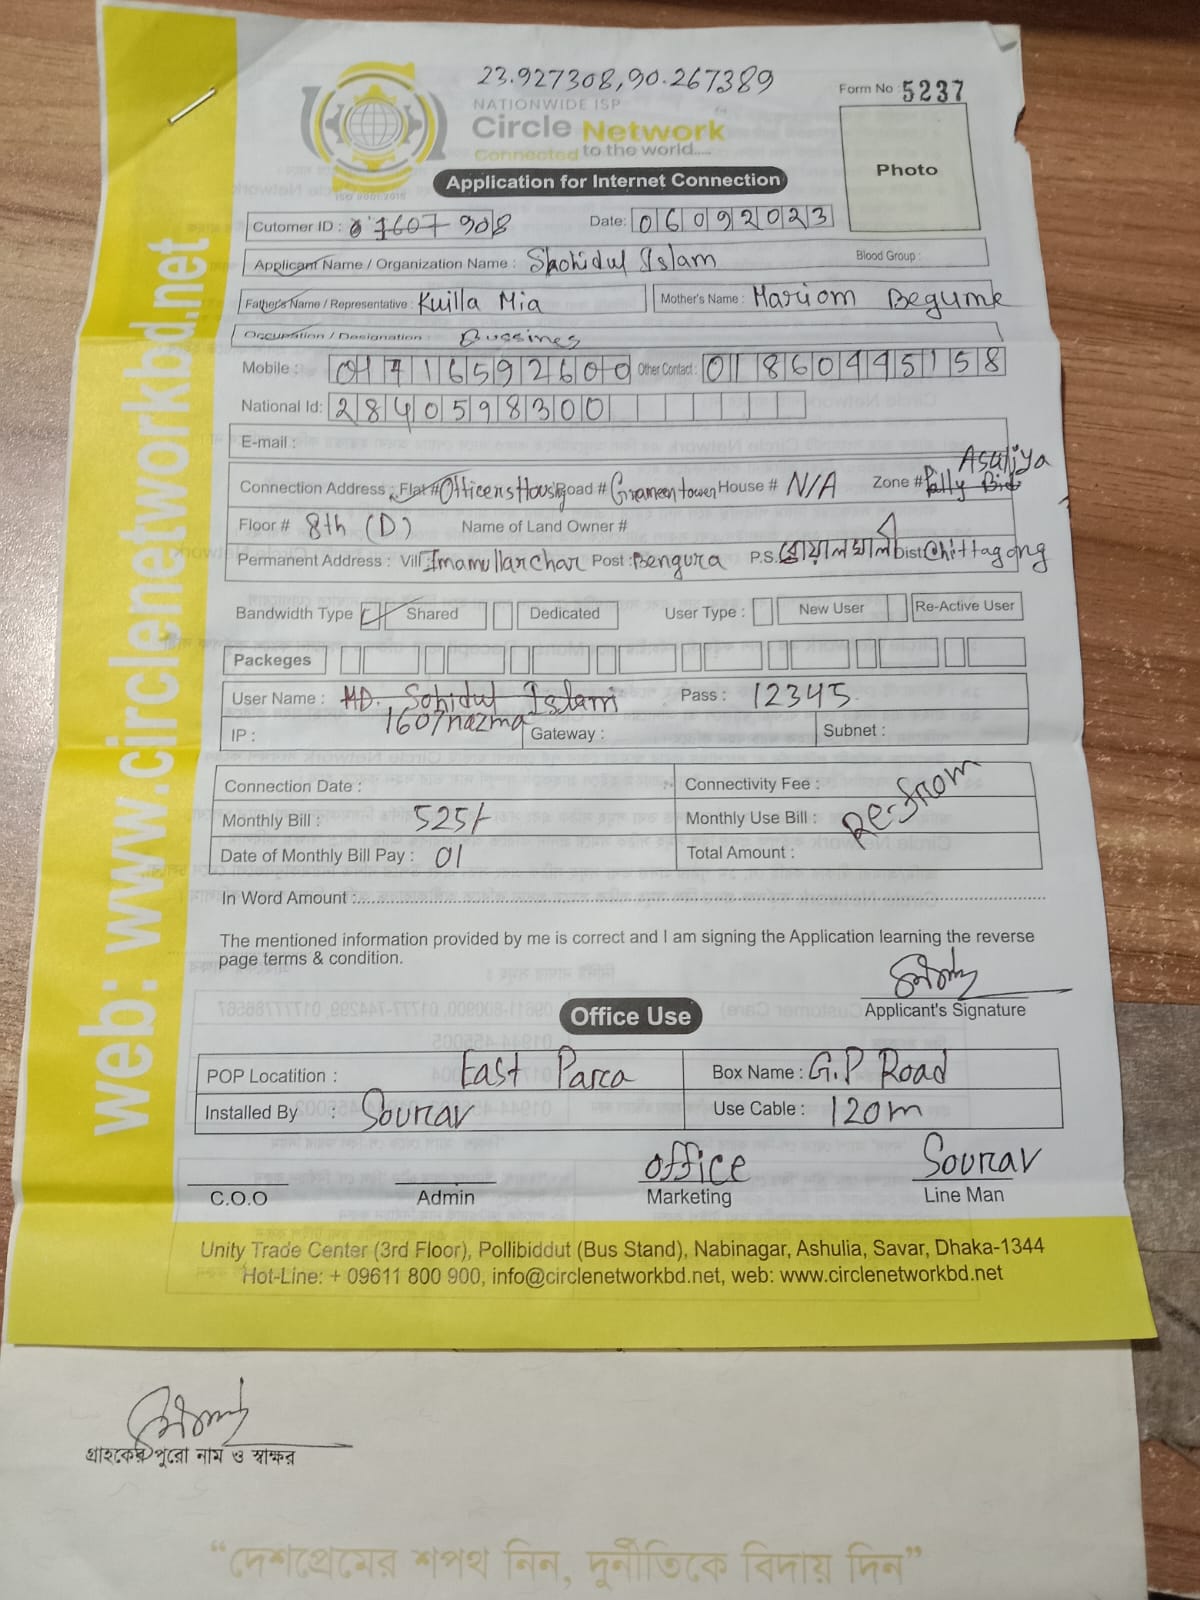 23.927308,90.267389
Form No 5237
NATIONWIDE ISP
Circle Network
Connected to the world.....
ISO 9001:2015
Photo
Application for Internet Connection
Cutomer ID : 1607 908 Date: 06092023
Applicant Name / Organization Name : Shohidul Islam Blood Group :
Father's Name / Representative : Kuilla Mia Mother's Name : Mariom Begume
Occupation / Designation : Bussines
Mobile : 01716592600 Other Contact : 01860445158
National Id: 2840598300
E-mail :
Asuliya
Connection Address : Flat# Officers Housing Road # Grameen tower House # N/A Zone # Pally Bid
Floor # 8th (D) Name of Land Owner #
Permanent Address : Vill Imamullarchar Post : Bengura P.S. বোয়ালখালী Dist Chittagong
Bandwidth Type Shared Dedicated User Type : New User Re-Active User
Packeges
User Name : MD. Sohidul Islam Pass : 12345
1607nazma
IP : Gateway : Subnet :
Connection Date : Connectivity Fee :
Monthly Bill : 525/- Monthly Use Bill : Re-from
Date of Monthly Bill Pay : 01 Total Amount :
In Word Amount :
The mentioned information provided by me is correct and I am signing the Application learning the reverse
page terms & condition.
Applicant's Signature
Office Use
POP Locatition : East Parca Box Name : G.P Road
Installed By : Sourav Use Cable : 120m
office Sourav
C.O.O Admin Marketing Line Man
Unity Trade Center (3rd Floor), Pollibiddut (Bus Stand), Nabinagar, Ashulia, Savar, Dhaka-1344
Hot-Line: + 09611 800 900, info@circlenetworkbd.net, web: www.circlenetworkbd.net
web: www.circlenetworkbd.net
গ্রাহকের পুরো নাম ও স্বাক্ষর
“দেশপ্রেমের শপথ নিন, দুর্নীতিকে বিদায় দিন”